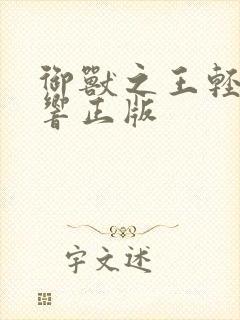 御獸之王輕
響正版
宇文述